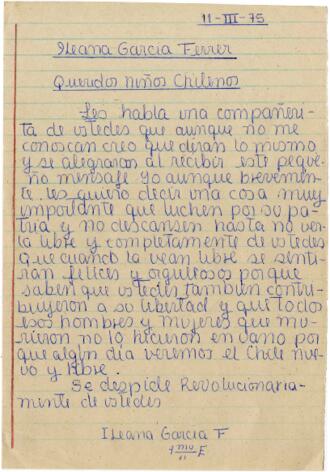 11-III-75
Ileana García Ferrer
Queridos niños Chilenos
Les habla una compañeri-
ta de ustedes que aunque no me
conoscan creo que diran lo mismo
y se alegraran al recibir este peque-
ño mensaje yo aunque brevemen-
te les quiero decir una cosa muy
importante que luchen por su pa-
tria y no descansen hasta no ver-
la libre y completamente de ustedes
que cuando la vean libre se senti-
ran felices y orgullosos porque
saben que ustedes tambien contri-
buyeron a su libertad y que todos
esos hombres y mujeres que mu-
rieron no lo hicieron en vano por
que algún día veremos el Chile nue-
vo y libre.
Se despide Revolucionaria-
mente de ustedes
Ileana García F